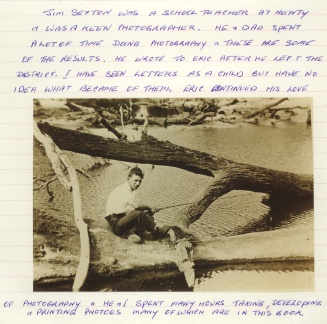 JIM SEXTON WAS A SCHOOL TEACHER AT HENTY
& WAS A KEEN PHOTOGRAPHER. HE & DAD SPENT
A LOT OF TIME DOING PHOTOGRAPHY & THESE ARE SOME
OF THE RESULTS. HE WROTE TO ERIC AFTER HE LEFT THE
DISTRICT. I HAVE SEEN LETTERS AS A CHILD BUT HAVE NO
IDEA WHAT BECAME OF THEM. ERIC CONTINUED HIS LOVE
OF PHOTOGRAPHY & HE & I SPENT MANY HOURS TAKING, DEVELOPING
& PRINTING PHOTOES MANY OF WHICH ARE IN THIS BOOK